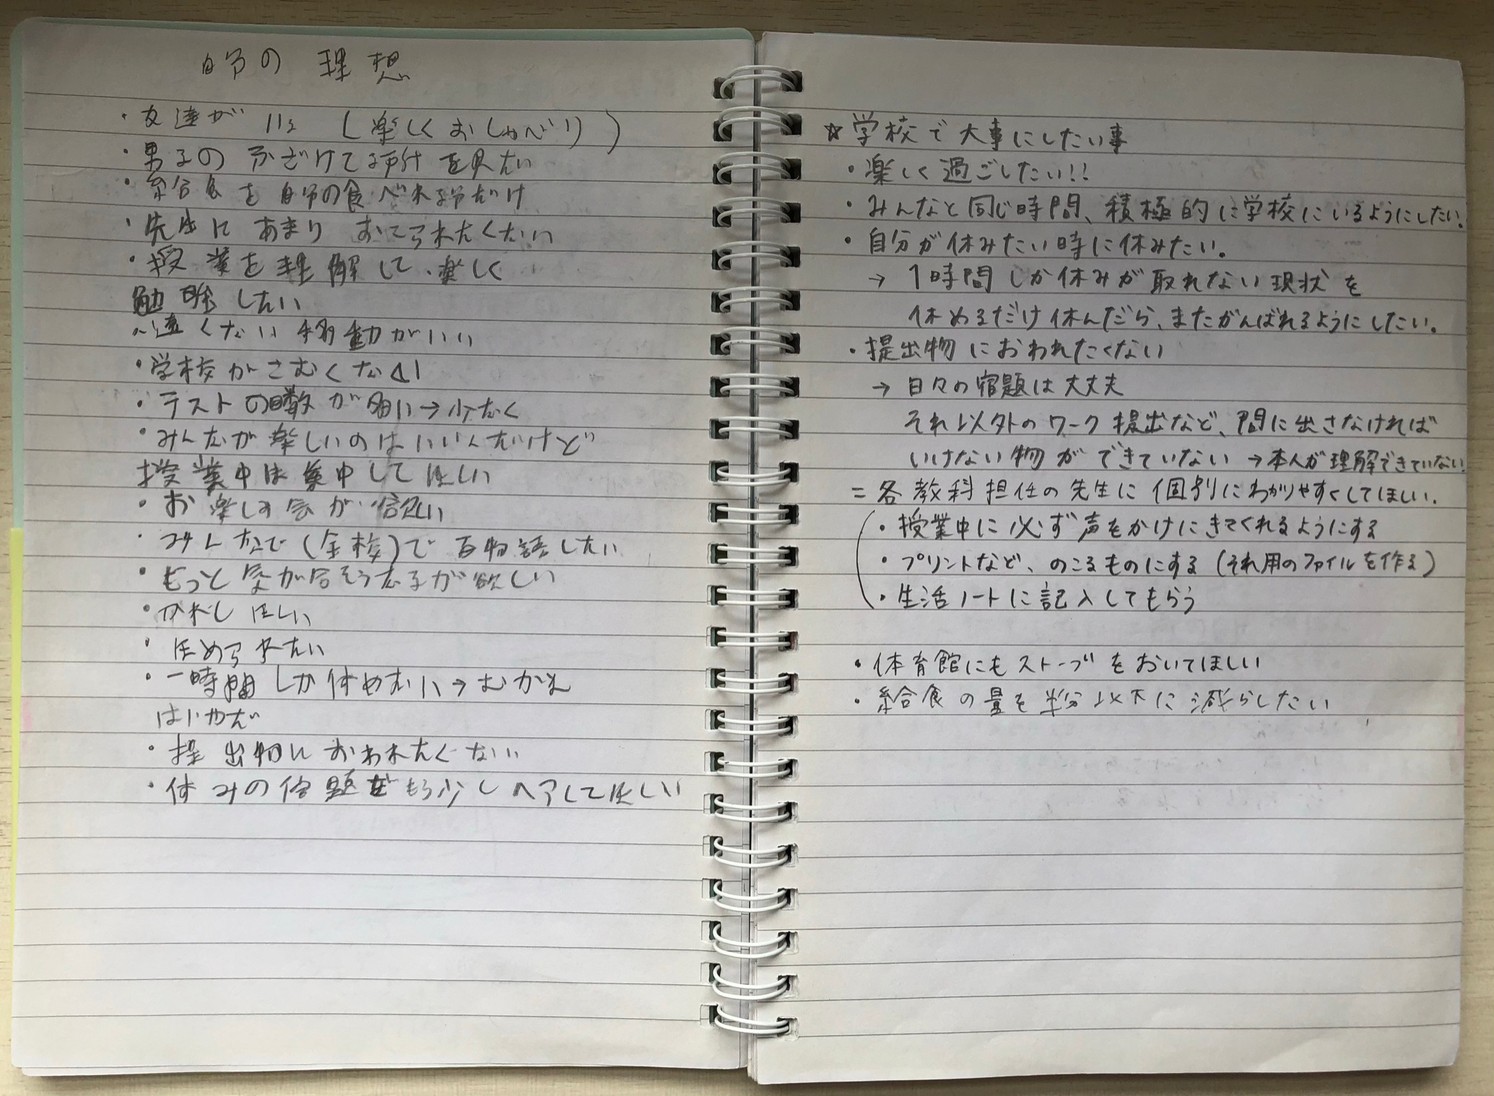 自分の 理想
・友達がいる (楽しくおしゃべり)
・男子の ふざけてる所を見たい
・給食を自分の食べれる分だけ
・先生に あまり おこられたくない
・授業を理解して、楽しく
勉強したい
・遠くない移動がいい
・学校がさむくない
・テストの回数が多い→少なく
・みんなが楽しいのはいいんだけど
授業中は集中してほしい
・お楽しみ会が欲しい
・みんなで(全校)で百物語したい
・もっと気が合そうな子が欲しい
・かれしほしい
・ほめられたい
・一時間しか休めない→むかえ
はいやだ
・提出物におわれたくない
・休みの宿題をもう少しへらしてほしい
☆学校で大事にしたい事
・楽しく過ごしたい!!
・みんなと同じ時間、積極的に学校にいるようにしたい。
・自分が休みたい時に休みたい。
→1時間しか休みが取れない現状を
休めるだけ休んだら、またがんばれるようにしたい。
・提出物におわれたくない
→日々の宿題は大丈夫
それ以外のワーク提出など、間に出さなければ
いけない物ができていない→本人が理解できていない。
=各教科担任の先生に個別にわかりやすくしてほしい。
・授業中に必ず声をかけにきてくれるようにする
・プリントなど、のこるものにする(それ用のファイルを作る)
・生活ノートに記入してもらう
・体育館にもストーブをおいてほしい
・給食の量を半分以下に減らしたい